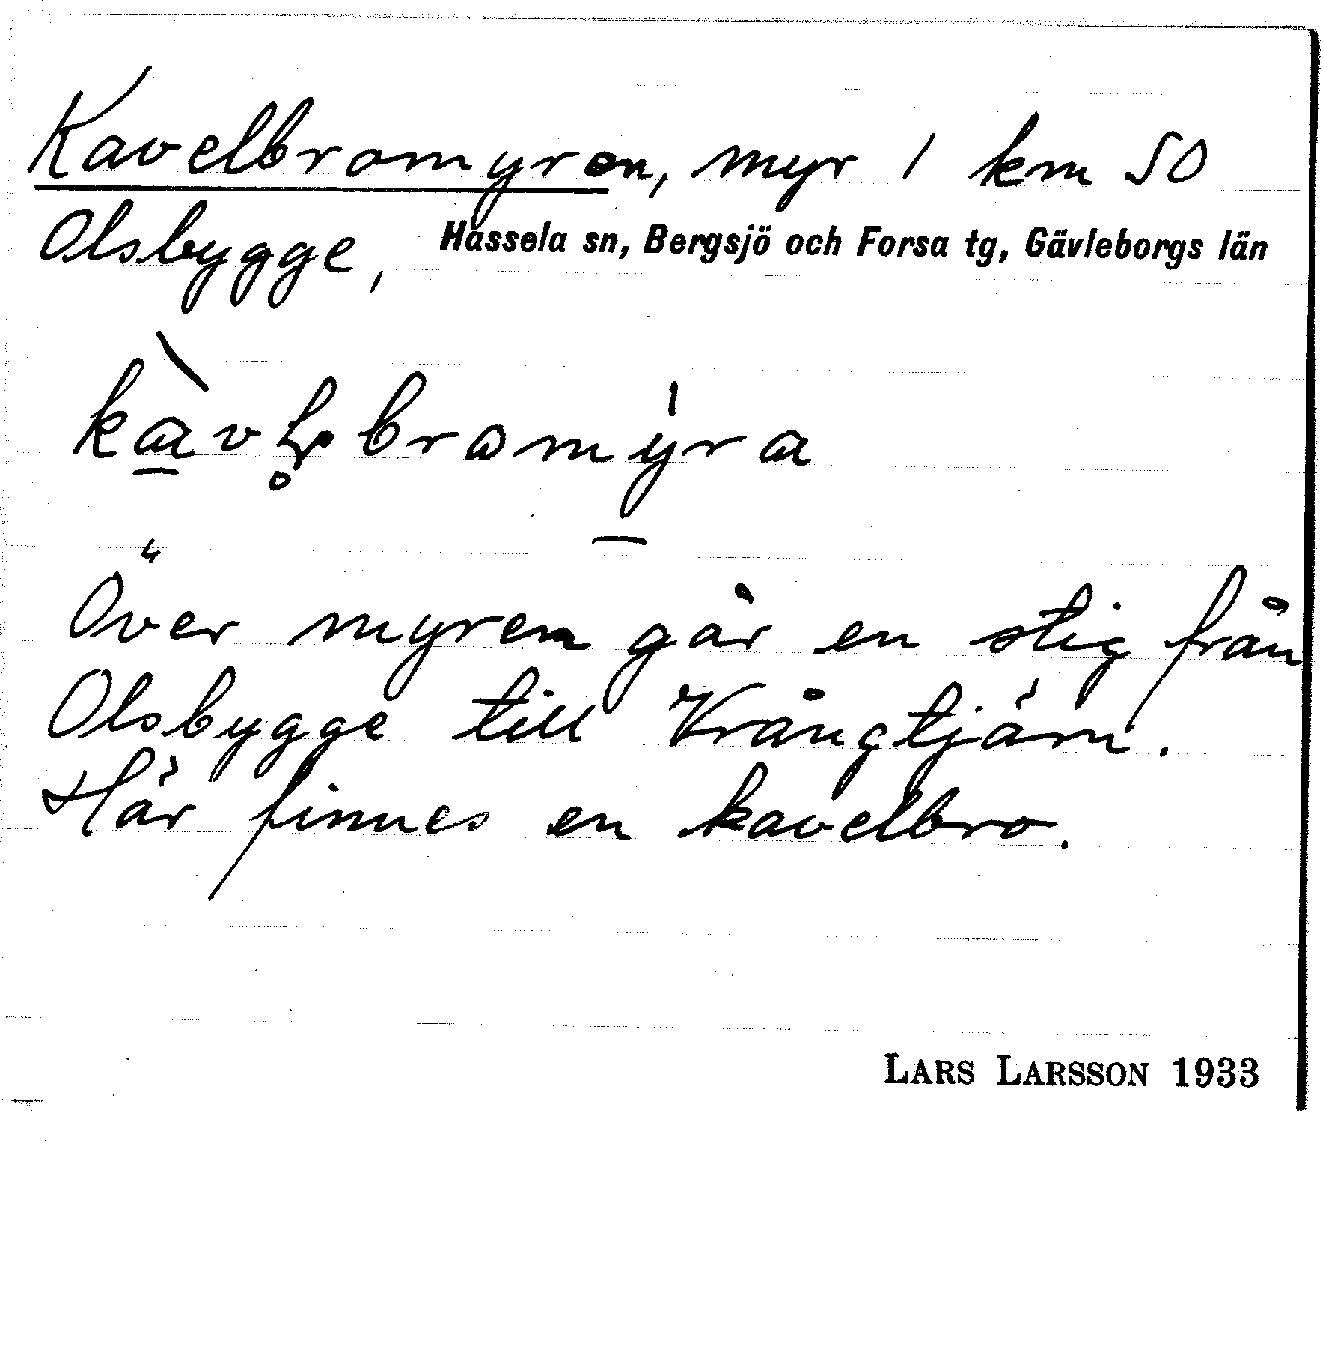 Kavelbromyren, myr 1 km SO
Olsbygge, Hassela sn, Bergsjö och Forsa tg, Gävleborgs län
kàvl̥bromýra
Över myren går en stig från
Olsbygge till Vrångtjärn.
Här finnes en kavelbro.
LARS LARSSON 1933